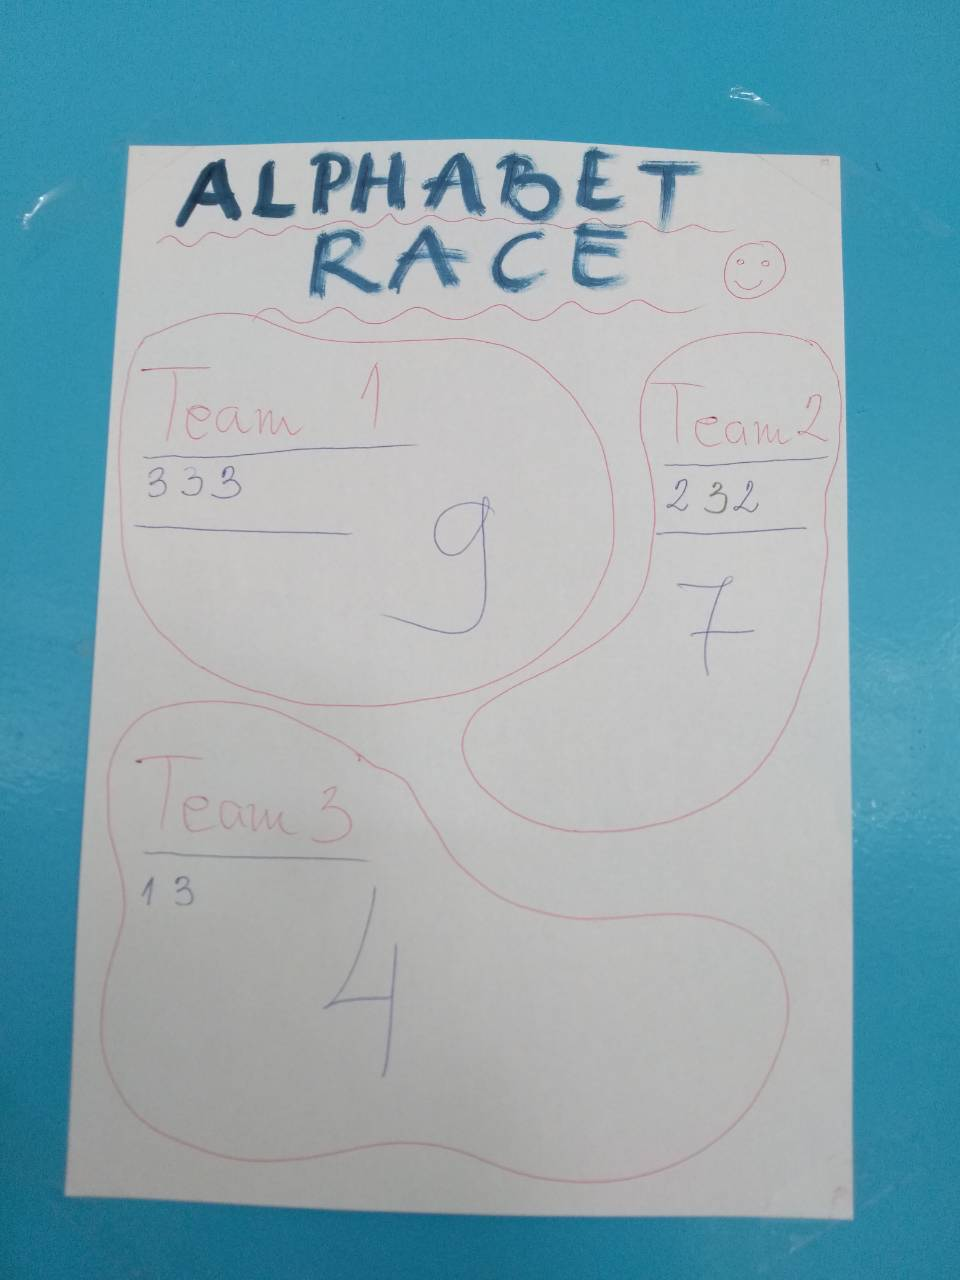 ALPHABET
RACE
Team 1
3 3 3
9
Team 2
2 3 2
7
Team 3
1 3
4